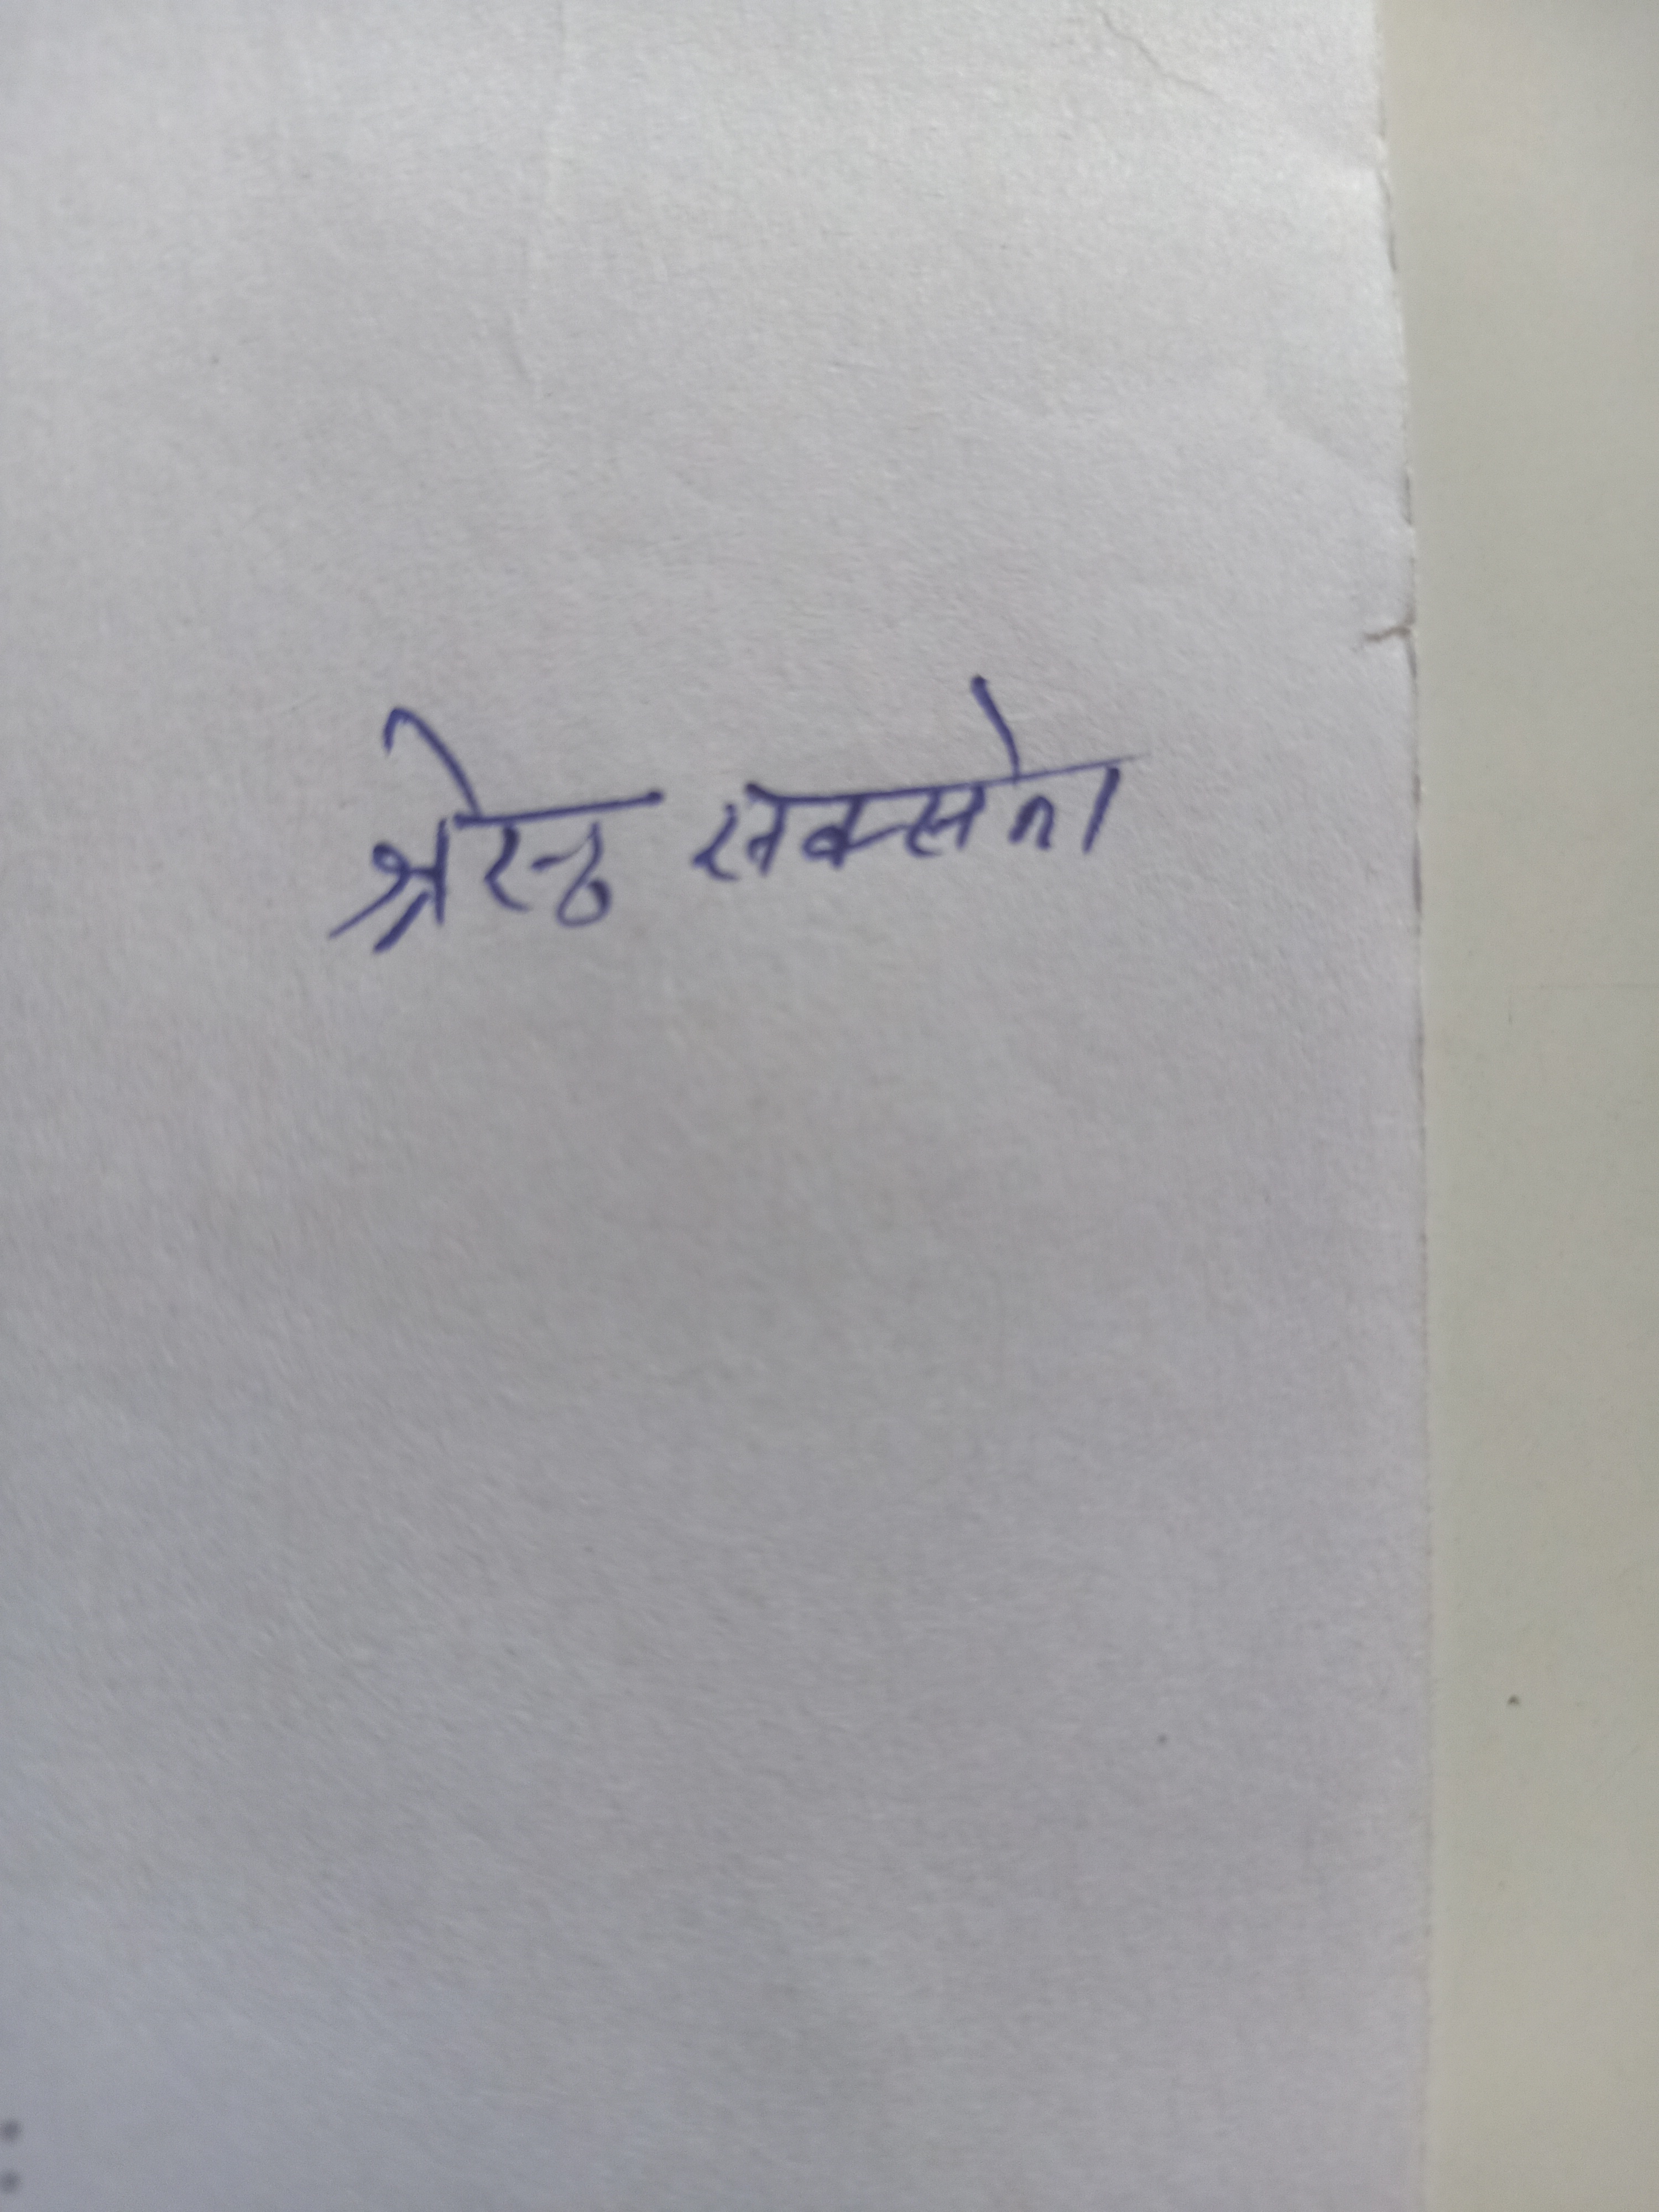 श्रेस्ठ सक्सेना